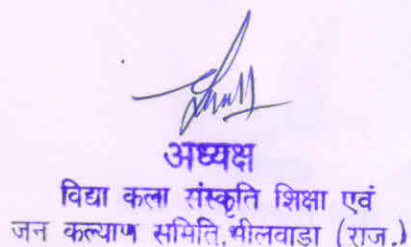 अध्यक्ष
विद्या कला संस्कृति शिक्षा एवं
जन कल्याण समिति,भीलवाडा (राज.)